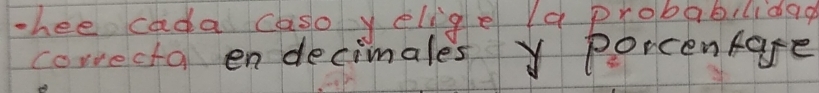 -hee cada caso y elige la probabilidad
correcta en decimales y porcentage